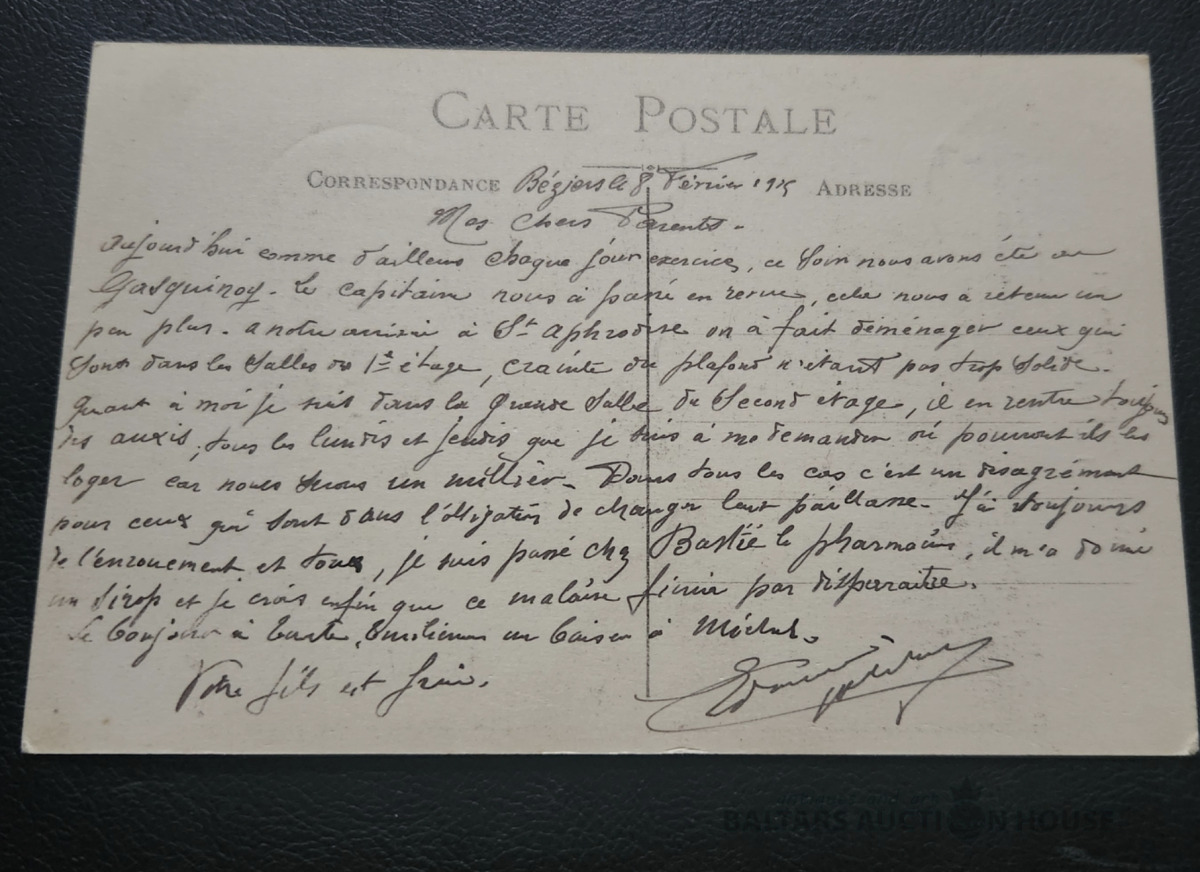 CARTE POSTALE
CORRESPONDANCE Béziers le 8 Février 1915 ADRESSE
Mes chers Parents.
Aujourd'hui comme d'ailleurs chaque jour exercice, ce soir nous avons été au
Gasquinoy. Le capitaine nous à passé en revue, cela nous a retenu un
peu plus. a notre arrivée à St Aphrodise on à fait déménager ceux qui
sont dans les salles du 1er étage, crainte du plafond n'étant pas trop solide.
Quant à moi je suis dans la grande salle du second étage, il en rentre toujours
des auxis, tous les lundis et jeudis que je suis à me demander où pourront ils les
loger car nous serons un millier. Dans tous les cas c'est un désagrément
pour ceux qui sont dans l'obligation de changer leur paillasse. J'ai toujours
de l'enrouement et toux, je suis passé chez Bastié le pharmacien, il m'a donné
un sirop et je crois enfin que ce malaise finira par disparaitre.
Le bonjour à un baiser à
Votre fils et frère.
BALTARS AUCTION HOUSE